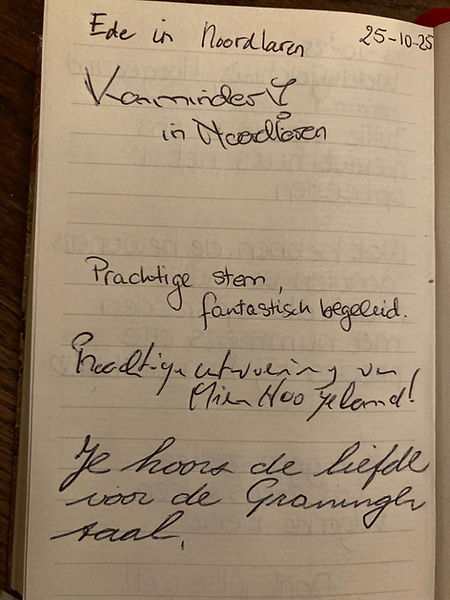 Ede in Noordlaren 25-10-25
in Noordlaren
Prachtige stem,
fantastisch begeleid.
Prachtige uitvoering van
Mien Hoogeland!
Je hoors de liefde
voor de Groninger
taal.